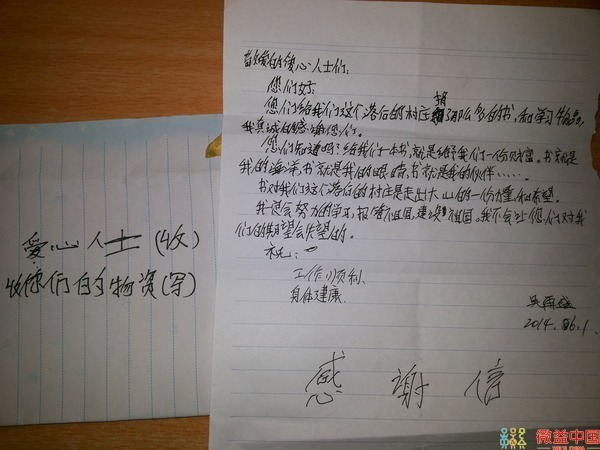 爱心人士(收)
收你们的物资(写)
首敬的爱心人士们:
您们好:
您们给我们这个落后的村庄捐了那么多的书,和学习物品
我真诚的感谢您们。
您们知道吗?给我们一本书,就是给我们一份财富。书就是
我的海洋,书就是我的眼睛,书就是我的伙伴……
书对我们这个落后的村庄是走出大山的一份力量和希望
我定会努力的学习,报答祖国,建设祖国。我不会让您们对我
们的期望会失望的。
祝:
工作顺利
身体健康
2014.06.1
感谢信
微益中国